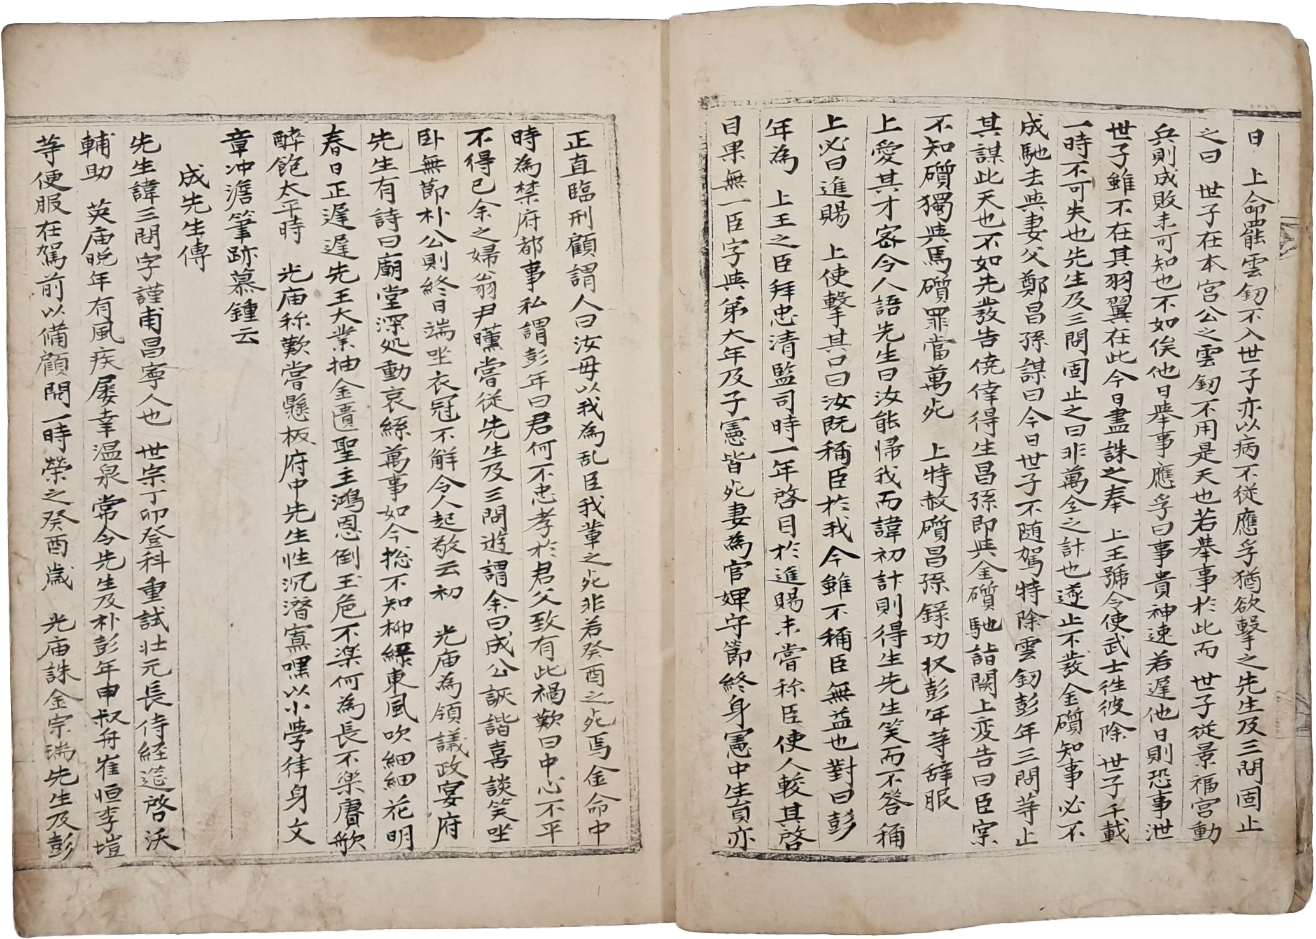 日 上命罷雲釼不入世子亦以病不從應孚猶欲擊之先生及三問固止
之曰 世子在本宮公之雲釼不用是天也若擧事於此而 世子從景福宮動
兵則成敗未可知也不如俟他日擧事應孚曰事貴神速若遲他日則恐事泄
世子雖不在其羽翼在此今日盡誅之奉 上王號令使武士徃彼除 世子千載
一時不可失也先生及三問固止之曰非萬全之計也遂止不發金礩知事必不
成馳去與妻父鄭昌孫謀曰今日世子不随駕特除雲釼彭年三問等止
其謀此天也不如先發告僥倖得生昌孫即與金礩馳詣闕上変告曰臣宲
不知礩獨與焉礩罪當萬死 上特赦礩昌孫錄功収彭年等辭服
上愛其才密令人語先生曰汝能歸我而諱初計則得生先生笑而不答稱
上必曰進賜 上使擊其口曰汝旣稱臣於我今雖不稱臣無益也對曰彭
年為 上王之臣拜忠清監司時一年啓目於進賜未嘗称臣使人較其啓
目果無一臣字與弟大年及子憲皆死妻為官婢守節終身憲中生員亦
正直臨刑顧謂人曰汝毋以我為乱臣我輩之死非若癸酉之死焉金命中
時為禁府都事私謂彭年曰君何不忠孝於君父致有此禍歎曰中心不平
不得已余之婦翁尹壎嘗從先生及三問遊謂余曰成公詼諧喜談笑坐
卧無節朴公則終日端坐衣冠不解令人起敬云初 光庙為領議政宴府
先生有詩曰廟堂深処動哀絲萬事如今摠不知柳綠東風吹細細花明
春日正遲遲先王大業抽金匱聖主鴻恩倒玉危不楽何為長不楽賡歌
醉飽太平時 光庙称歎嘗懸板府中先生性沉潛寡嘿以小學律身文
章冲澹筆跡慕鍾云
成先生傳
先生諱三問字謹甫昌寧人也 世宗丁卯登科重試壮元長侍経筵啓沃
輔助 英庙晩年有風疾屡幸温泉常令先生及朴彭年申叔舟崔恒李塏
等便服在駕前以備顧問一時榮之癸酉歲 光庙誅金宗瑞先生及彭